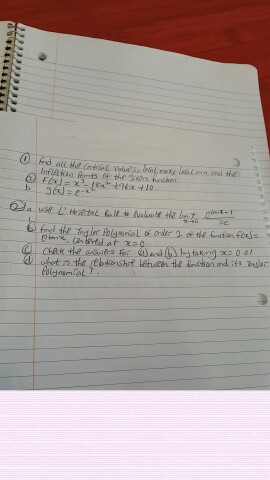 ① find all the Critical values, local max, local min and the
Inflection Points of the given function
ⓐ F(x) = x³ - 18x² + 96x + 10
b g(x) = e^-x²
② a use L' Hospital Rule to evaluate the limit x→0 e^tanx - 1 / x
ⓑ find the Taylor Polynomial of order 2 of the function f(x) =
e^tanx, Centered at x = 0
ⓒ check the answers for ⓐ and ⓑ by taking x = 0.01
ⓓ what is the relationship between the function and its Taylor
Polynomial?